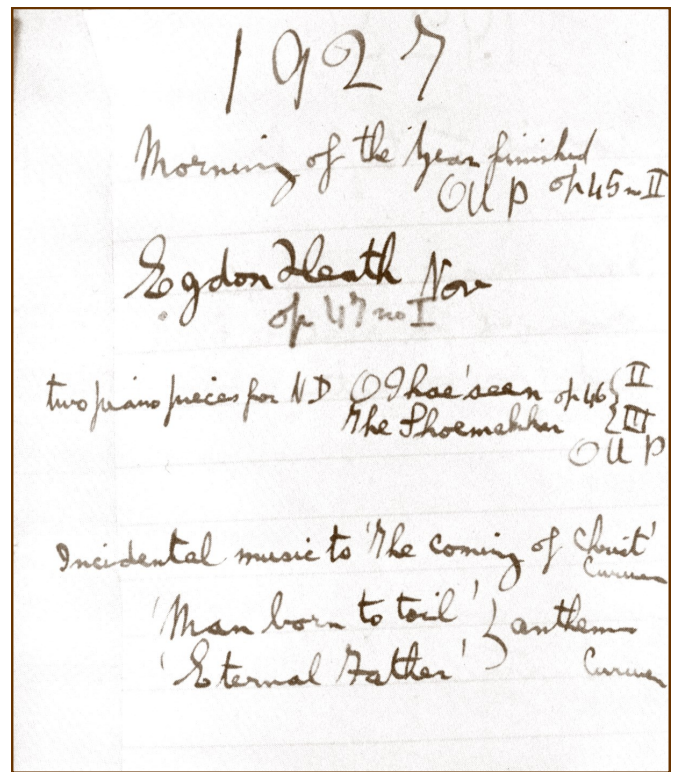 1927
Morning of the Year finished
OUP op 45 no II
Egdon Heath Nov
op 47 no I
two piano pieces for ND O I hae seen op 46 { II
The Shoemakker { III
OUP
Incidental music to 'The Coming of Christ'
Curwen
'Man born to toil' } anthems
'Eternal Father' Curwen